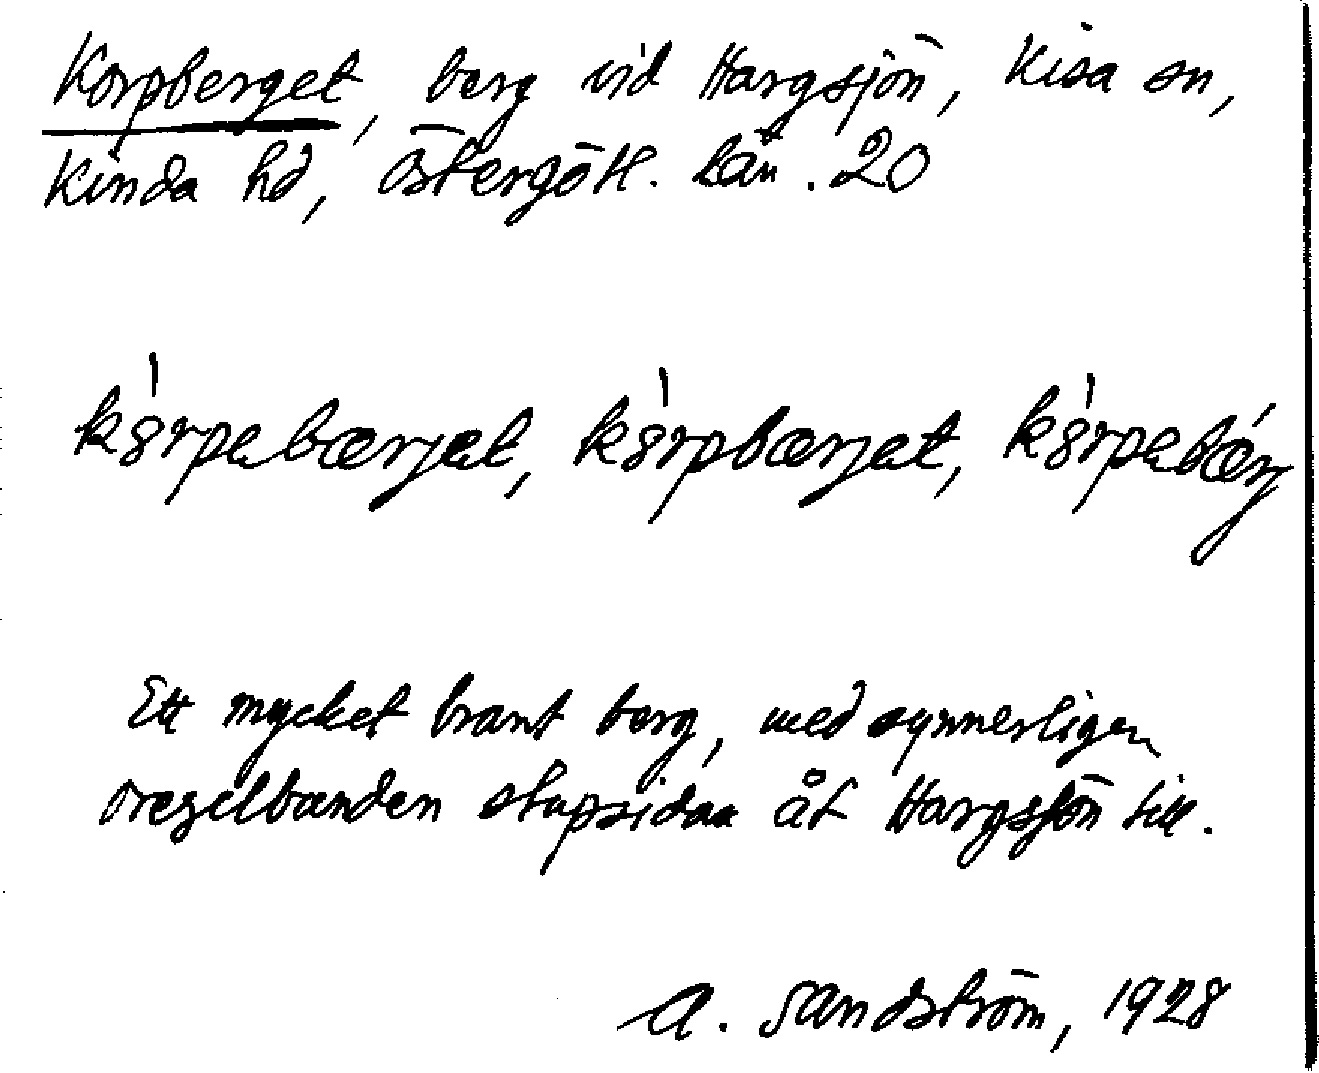 Korpberget, berg vid Hargsjön, Kisa sn,
Kinda hd, Östergötl. län. 20
kȯrpabærjat, kȯrpbærjat, kȯrpabærj
Ett mycket brant berg, med synnerligen
oregelbunden stupsida åt Hargsjön till.
A. Sandström, 1928